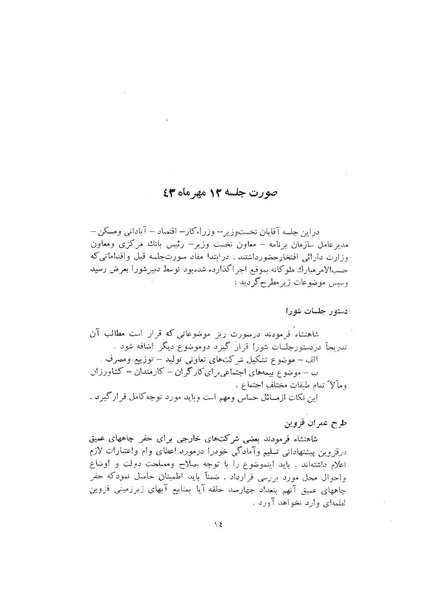 صورت جلسه ۱۲ مهر ماه ۴۳
در این جلسه آقایان نخست‌وزیر – وزراء کار – اقتصاد – آبادانی ومسکن –
مدیرعامل سازمان برنامه – معاون نخست وزیر – رئیس بانک مرکزی ومعاون
وزارت دارائی افتخار حضور داشتند . در ابتدا مفاد صورت جلسه قبل و اقداماتی که
حسب‌الامر مبارک ملوکانه بموقع اجرا گذارده شده بود توسط دبیر شورا بعرض رسید
وسپس موضوعات زیر مطرح گردید :
دستور جلسات شورا
شاهنشاه فرمودند درصورت ریز موضوعاتی که قرار است مطالب آن
تدریجاً در دستور جلسات شورا قرار گیرد دو موضوع دیگر اضافه شود .
الف – موضوع تشکیل شرکت‌های تعاونی تولید – توزیع ومصرف .
ب – موضوع بیمه‌های اجتماعی برای کارگران – کارمندان – کشاورزان
ومآلاً تمام طبقات مختلف اجتماع .
این نکات از مسائل حساس ومهم است وباید مورد توجه کامل قرار گیرد .
طرح عمران قزوین
شاهنشاه فرمودند بعضی شرکت‌های خارجی برای حفر چاههای عمیق
در قزوین پیشنهاداتی تسلیم وآمادگی خود را درمورد اعطای وام واعتبارات لازم
اعلام داشته‌اند . باید اینموضوع را با توجه بصلاح ومصلحت دولت و اوضاع
واحوال محل مورد بررسی قرارداد . ضمناً باید اطمینان حاصل نمود که حفر
چاههای عمیق آنهم بتعداد چهارصد حلقه آیا بمنابع آبهای زیرزمینی قزوین
لطمه‌ای وارد نخواهد آورد .
۱۴